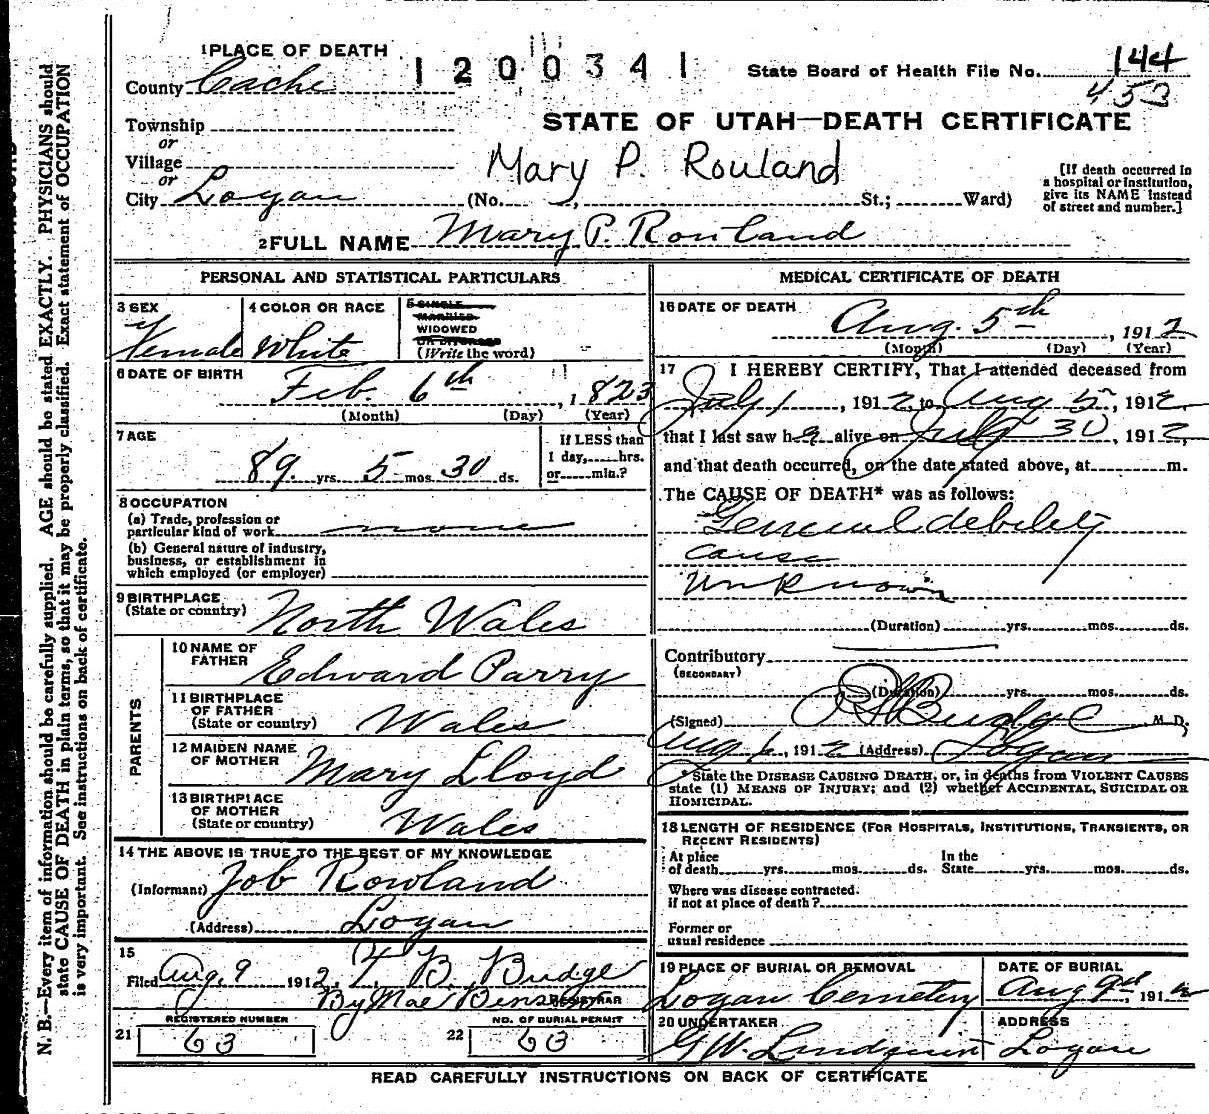 1 PLACE OF DEATH
1200341
State Board of Health File No. 144
453
County Cache
Township
or
Village
or
City Logan
STATE OF UTAH—DEATH CERTIFICATE
Mary P. Rouland
(No. St.; Ward)
[If death occurred in
a hospital or institution,
give its NAME instead
of street and number.]
2 FULL NAME Mary P. Rowland
PERSONAL AND STATISTICAL PARTICULARS
3 SEX
Female
4 COLOR OR RACE
White
5 SINGLE
MARRIED
WIDOWED
OR DIVORCED
(Write the word)
6 DATE OF BIRTH
Feb. 6th, 1823
(Month) (Day) (Year)
7 AGE
89 yrs. 5 mos. 30 ds.
If LESS than
1 day, hrs.
or min.?
8 OCCUPATION
(a) Trade, profession or
particular kind of work none
(b) General nature of industry,
business, or establishment in
which employed (or employer)
9 BIRTHPLACE
(State or country) North Wales
PARENTS
10 NAME OF
FATHER Edward Parry
11 BIRTHPLACE
OF FATHER
(State or country) Wales
12 MAIDEN NAME
OF MOTHER Mary Lloyd
13 BIRTHPLACE
OF MOTHER
(State or country) Wales
14 THE ABOVE IS TRUE TO THE BEST OF MY KNOWLEDGE
(Informant) Job Rowland
(Address) Logan
15
Filed Aug. 9 1912. T. B. Budge
By Mae Benson
REGISTRAR
REGISTERED NUMBER
21 63
NO. OF BURIAL PERMIT
22 63
MEDICAL CERTIFICATE OF DEATH
16 DATE OF DEATH
Aug. 5th, 1912
(Month) (Day) (Year)
17 I HEREBY CERTIFY, That I attended deceased from
July 1, 1912, to Aug 5", 1912,
that I last saw h alive on July 30, 1912,
and that death occurred, on the date stated above, at m.
The CAUSE OF DEATH* was as follows:
General debility
cause
unknown
(Duration) yrs. mos. ds.
Contributory
(SECONDARY)
(Duration) yrs. mos. ds.
(Signed) Budge M. D.
Aug 6, 1912 (Address) Logan
*State the DISEASE CAUSING DEATH, or, in deaths from VIOLENT CAUSES
state (1) MEANS OF INJURY; and (2) whether ACCIDENTAL, SUICIDAL OR
HOMICIDAL.
18 LENGTH OF RESIDENCE (FOR HOSPITALS, INSTITUTIONS, TRANSIENTS, OR
RECENT RESIDENTS)
At place
of death yrs. mos. ds.
In the
State yrs. mos. ds.
Where was disease contracted.
if not at place of death?
Former or
usual residence
19 PLACE OF BURIAL OR REMOVAL
Logan Cemetery
DATE OF BURIAL
Aug 9", 1912
20 UNDERTAKER
G W. Lindquist
ADDRESS
Logan
READ CAREFULLY INSTRUCTIONS ON BACK OF CERTIFICATE
N. B.—Every item of information should be carefully supplied. AGE should be stated EXACTLY. PHYSICIANS should
state CAUSE OF DEATH in plain terms, so that it may be properly classified. Exact statement of OCCUPATION
is very important. See instructions on back of certificate.